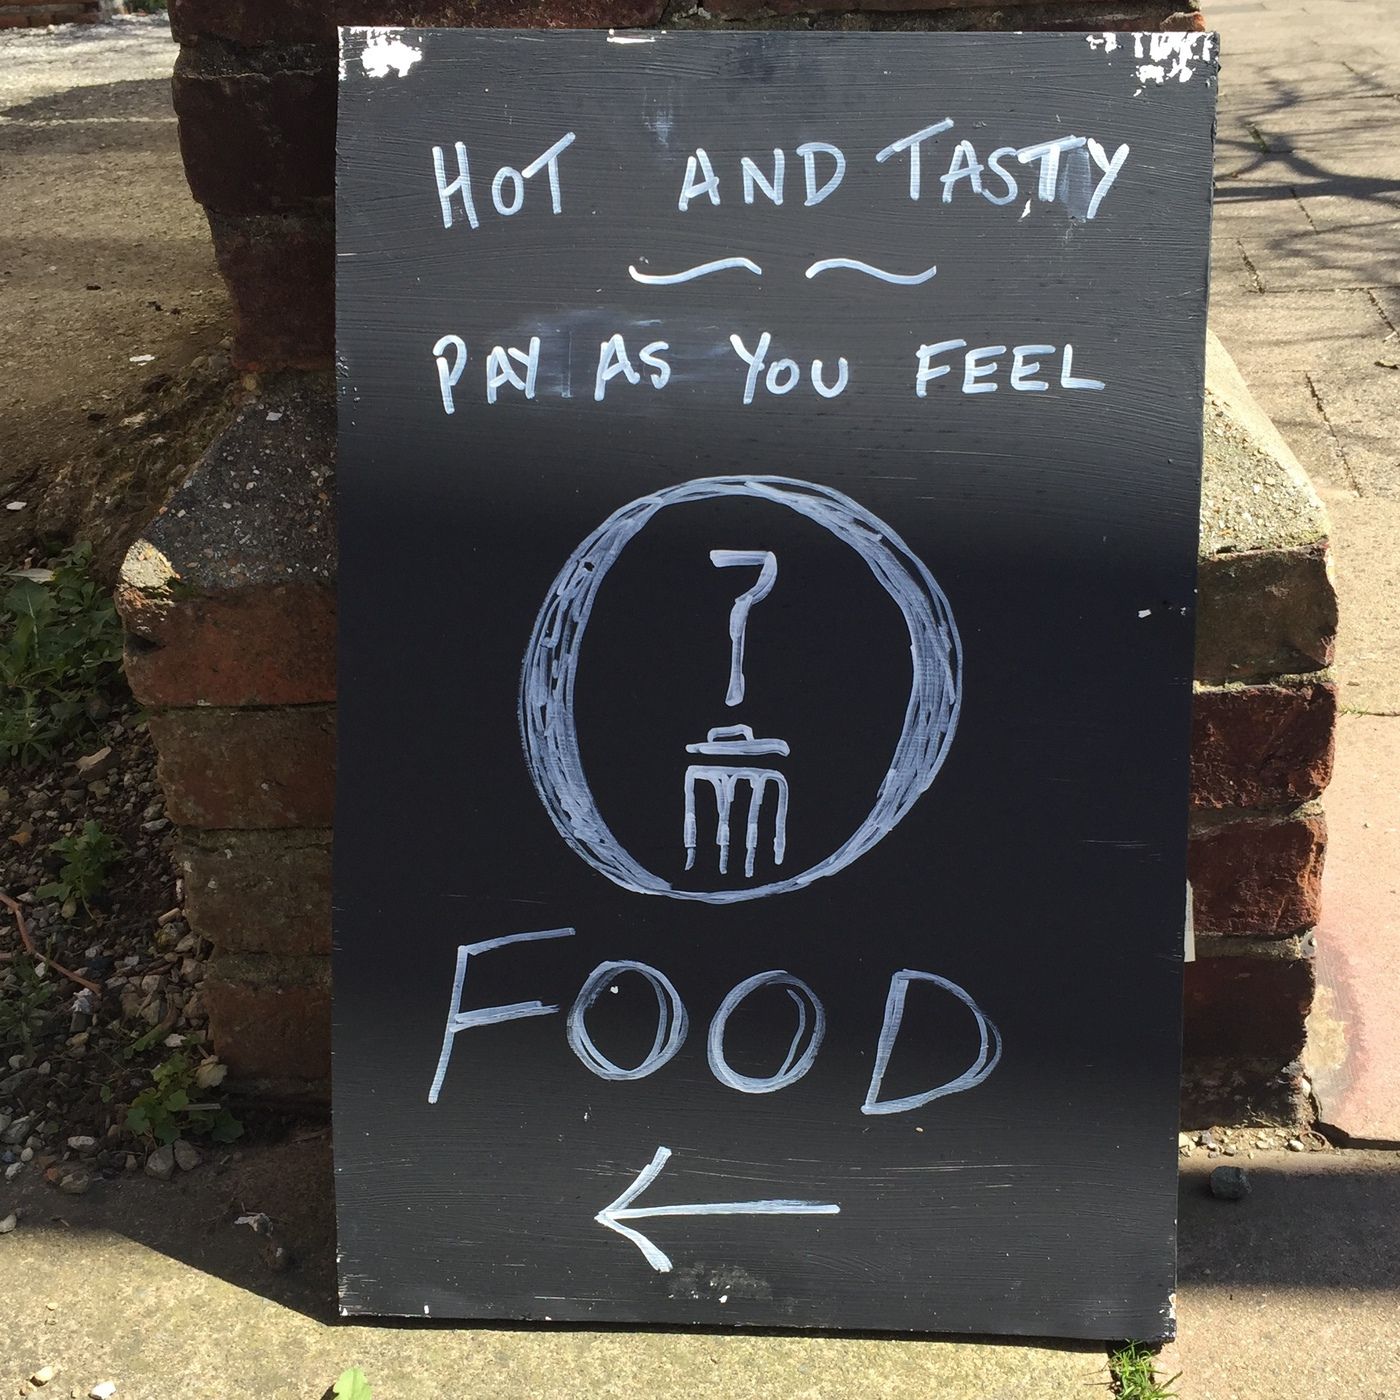 HOT AND TASTY
PAY AS YOU FEEL
FOOD